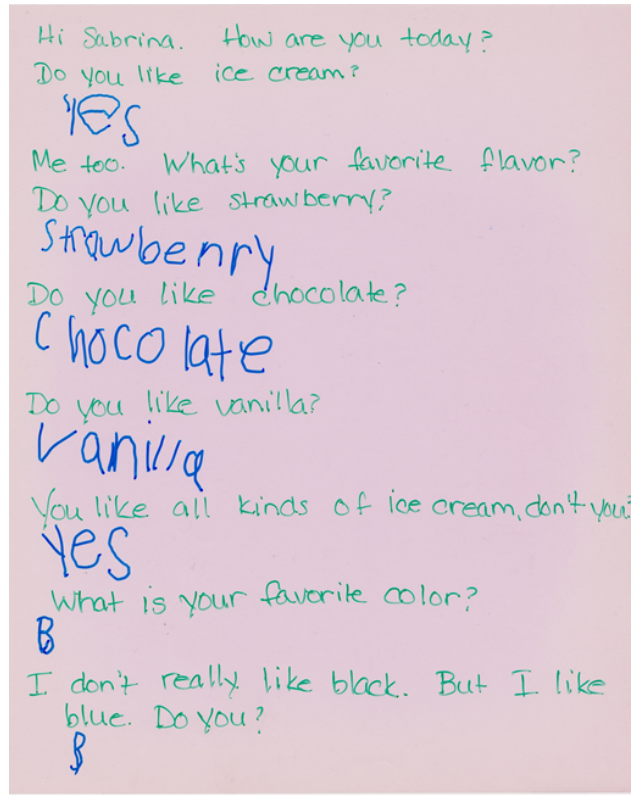 Hi Sabrina. How are you today?
Do you like ice cream?
yes
Me too. What's your favorite flavor?
Do you like strawberry?
Strawbenry
Do you like chocolate?
Chocolate
Do you like vanilla?
Vanilla
You like all kinds of ice cream, don't you?
yes
What is your favorite color?
B
I don't really like black. But I like
blue. Do you?
B